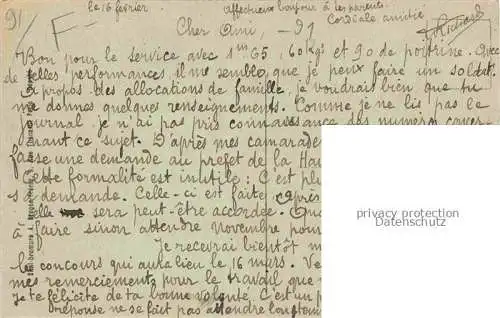 91
F
le 16 février
Affectueux bonjour à tes parents.
Cordiale amitié
Cher Ami,
Bon pour le service avec 1m65, 60 kgs et 90 de poitrine. Avec
de telles performances il me semble que je peux faire un soldat
A propos des allocations de famille, je voudrai bien que tu
me donnes quelques renseignements. Comme je ne lis pas le
journal je n'ai pas pris connaissance des numéros concer-
nant ce sujet. D'après mes camarade
fasse une demande au prefet de la Hau
Cette formalité est inutile : C'est pl
sa demande. Celle-ci est faite, après
elle sera peut-être accordée. Que
à faire sinon attendre novembre pour
Je recevrai bientôt m
le concours qui aura lieu le 16 mars. Ve
mes remerciements pour le travail que
Je te félicite de ta bonne volonté. C'est un p
réponse ne se fait pas attendre longtemps
privacy protection
Datenschutz